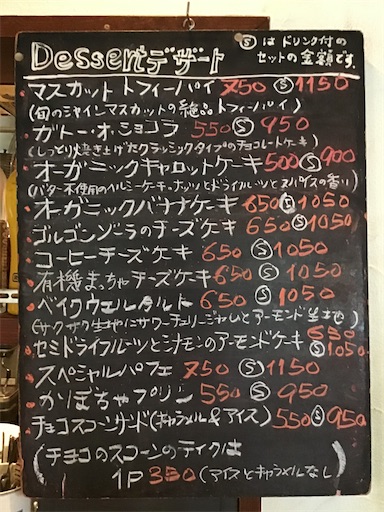 Dessert デザート
Ⓢ は ドリンク付の
セットの金額です。
マスカット トフィーパイ 750 Ⓢ 1150
(旬のシャインマスカットの絶品トフィーパイ)
ガトー・オ・ショコラ 550 Ⓢ 950
(しっとり焼き上げたクラシックタイプのチョコレートケーキ)
オーガニックキャロットケーキ 500 Ⓢ 900
(バター不使用のヘルシーケーキ・ナッツとドライフルーツとスパイスの香り)
オーガニックバナナケーキ 650 Ⓢ 1050
ゴルゴンゾーラのチーズケーキ 650 Ⓢ 1050
コーヒーチーズケーキ 650 Ⓢ 1050
有機まっちゃチーズケーキ 650 Ⓢ 1050
ベイクウェルタルト 650 Ⓢ 1050
(サクサク生地にサワーチェリージャムとアーモンド生地)
セミドライフルーツとシナモンのアーモンドケーキ 650 Ⓢ 1050
スペシャルパフェ 750 Ⓢ 1150
かぼちゃプリン 550 Ⓢ 950
チョコスコーンサンド(キャラメル&アイス) 550 Ⓢ 950
(チョコのスコーンのテイクは
1P 350 (アイスとキャラメルなし)